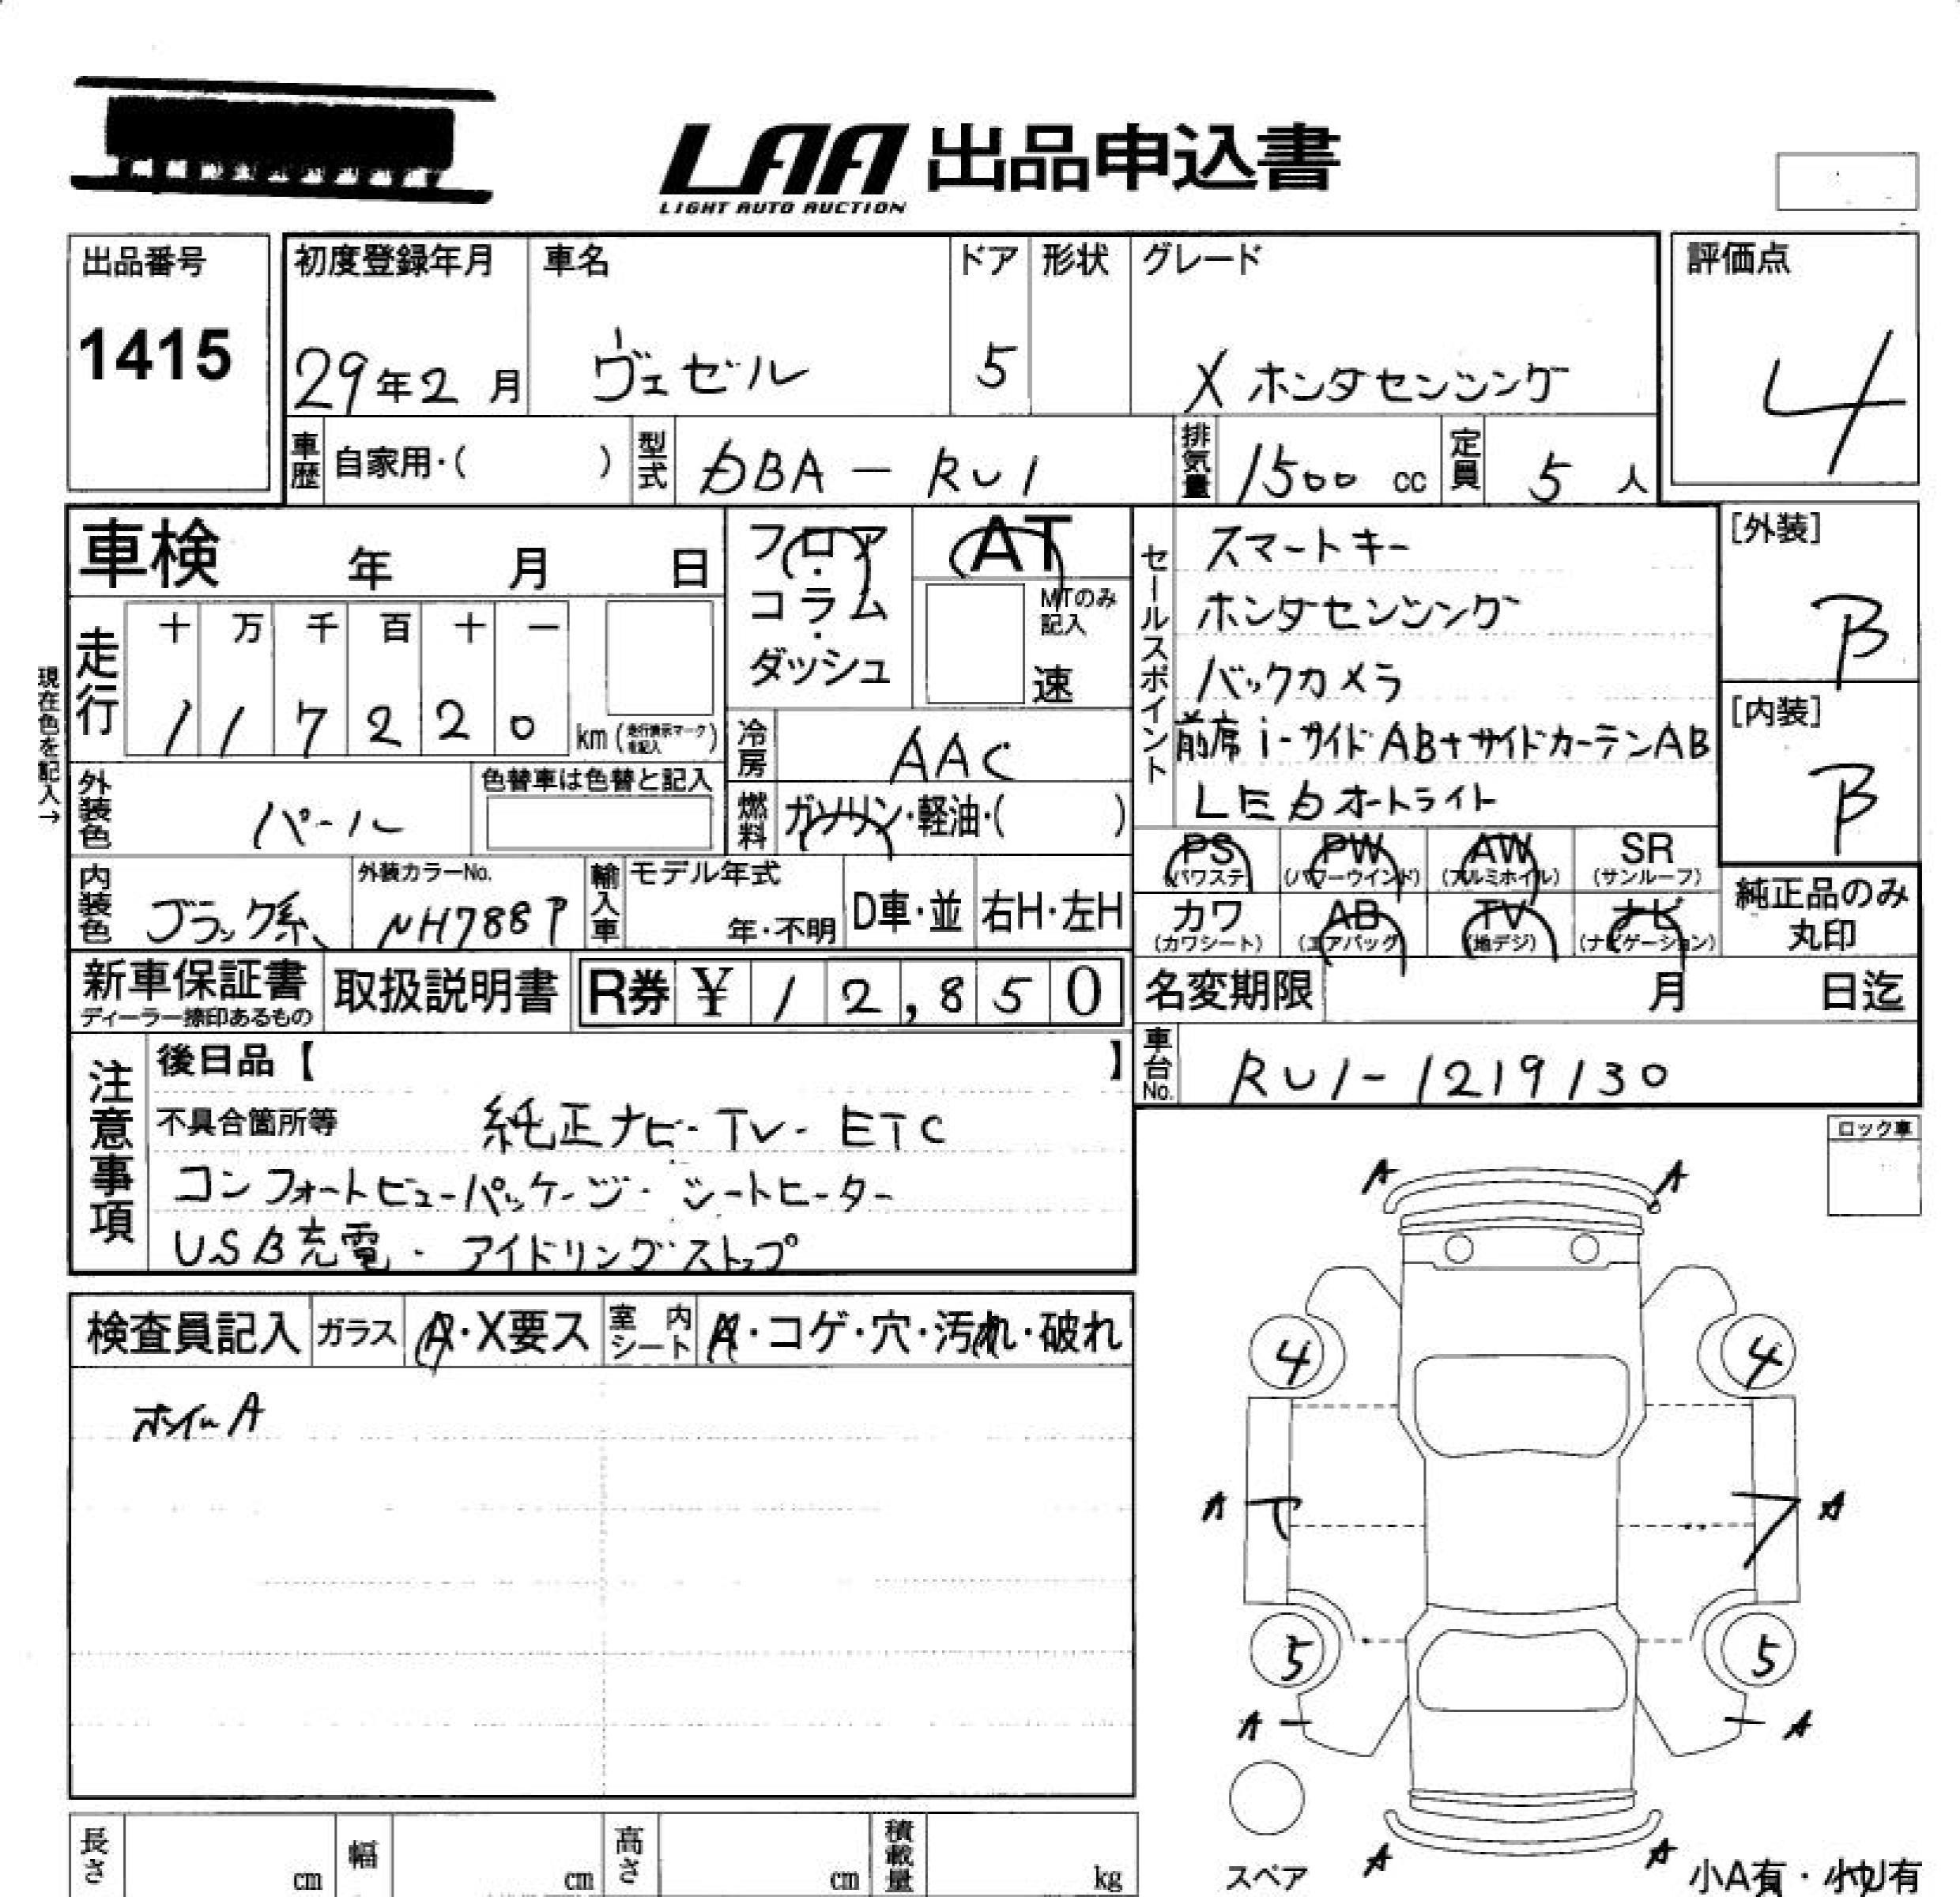 LAA 出品申込書
LIGHT AUTO AUCTION
出品番号
1415
初度登録年月
29年2月
車名
ヴェゼル
ドア
5
形状
グレード
X ホンダセンシング
評価点
4
車歴 自家用・( )
型式 DBA-RU1
排気量 1500 cc
定員 5 人
車検 年 月 日
フロア・コラム・ダッシュ
AT
MTのみ記入
速
現在色を記入→
走行
十 万 千 百 十 一
1 1 7 2 2 0 km (走行表示マークを記入)
冷房 AAC
燃料 ガソリン・軽油・( )
外装色 パール
色替車は色替と記入
内装色 ブラック系
外装カラーNo.
NH788P
輸入車
モデル年式
年・不明
D車・並
右H・左H
セールスポイント
スマートキー
ホンダセンシング
バックカメラ
前席i-サイドAB+サイドカーテンAB
LEDオートライト
[外装]
B
[内装]
B
PS (パワステ)
PW (パワーウインド)
AW (アルミホイル)
SR (サンルーフ)
カワ (カワシート)
AB (エアバッグ)
TV (地デジ)
ナビ (ナビゲーション)
純正品のみ
丸印
新車保証書
ディーラー捺印あるもの
取扱説明書
R券 ¥ 12,850
名変期限 月 日迄
車台No. RU1-1219130
注意事項
後日品【 】
不具合箇所等 純正ナビ・TV・ETC
コンフォートビューパッケージ・シートヒーター
USB充電・アイドリングストップ
ロック車
検査員記入
ガラス A・X要ス
室内シート A・コゲ・穴・汚れ・破れ
ホイルA
A A
4 4
A A
5 5
A A
スペア
A A
小A有・小U有
長さ cm
幅 cm
高さ cm
積載量 kg